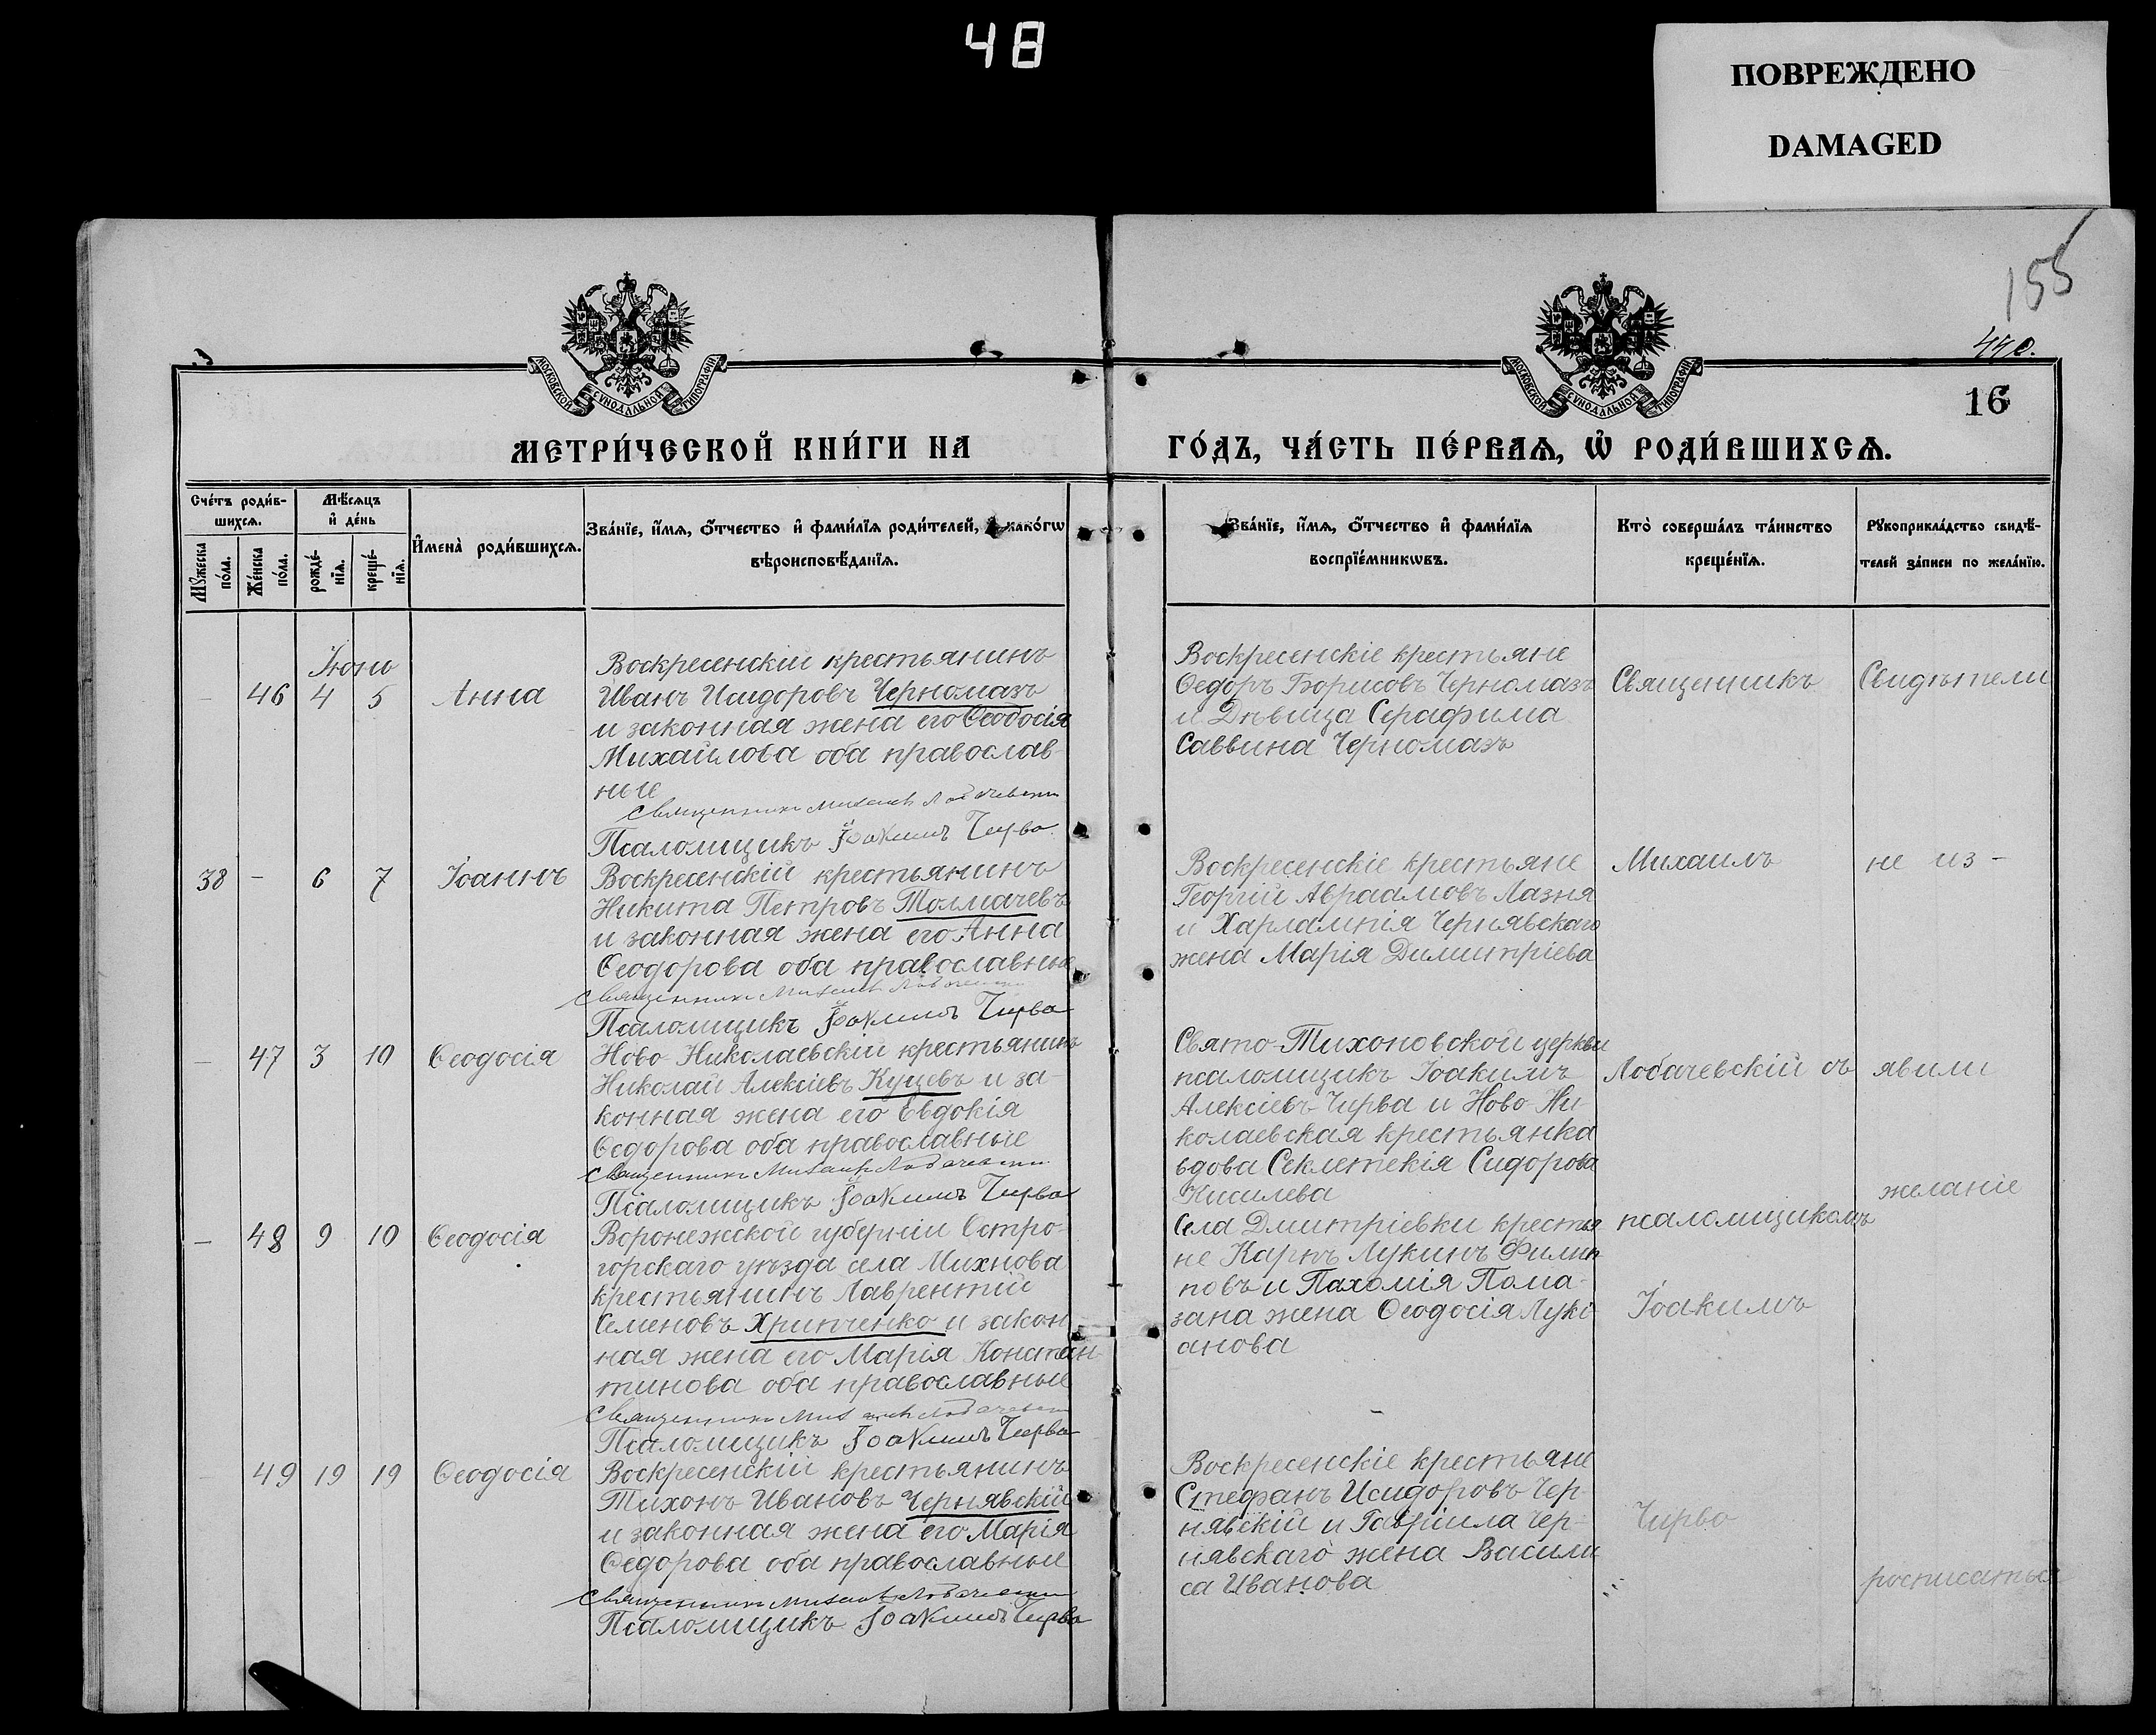 48
ПОВРЕЖДЕНО
DAMAGED
155
16
МОСКОВСКОЙ СѴНОДАЛЬНОЙ ТИПОГРАФІИ
МОСКОВСКОЙ СѴНОДАЛЬНОЙ ТИПОГРАФІИ
МЕТРИ́ЧЕСКОЙ КНИ́ГИ НА ГО́ДЪ, ЧА́СТЬ ПЕ́РВАѦ, Ѡ҆ РОДИ́ВШИХСѦ.
Сче́тъ роди́в-
шихсѧ.
Мꙋ́жеска
по́ла.
Же́нска
по́ла.
Мѣ́сѧцъ
и҆ де́нь
рожде́-
нїѧ.
креще́-
нїѧ.
И҆мена̀ роди́вшихсѧ.
Зва́нїе, и҆́мѧ, ѻ҆́тчество и҆ фами́лїѧ роди́телей, и҆ како́гѡ
вѣроисповѣ́данїѧ.
Зва́нїе, и҆́мѧ, ѻ҆́тчество и҆ фами́лїѧ
воспрїе́мникѡвъ.
Кто̀ соверша́лъ та́инство
креще́нїѧ.
Рꙋкоприкла́дство свидѣ́-
телей за́писи по жела́нїю.
Іюнь
- 46 4 5 Анна
Воскресенскій крестьянинъ
Иванъ Исидоровъ Черномазъ
и законная жена его Ѳеодосія
Михайлова оба православ-
ные
Священникъ Михаилъ Лобачевскій
Псаломщикъ Іоакимъ Чирва
Воскресенскіе крестьяне
Ѳедоръ Борисовъ Черномазъ
и Дѣвица Серафима
Саввина Черномазъ
Священникъ
Свидѣтели
38 - 6 7 Іоаннъ
Воскресенскій крестьянинъ
Никита Петровъ Толмачевъ
и законная жена его Анна
Ѳеодорова оба православные
Священникъ Михаилъ Лобачевскій
Псаломщикъ Іоакимъ Чирва
Воскресенскіе крестьяне
Георгій Авраамовъ Лазня
и Харлампія Чернявскаго
жена Марія Димитріева
Михаилъ
не из-
- 47 3 10 Ѳеодосія
Ново-Николаевскій крестьянинъ
Николай Алексіевъ Куцевъ и за-
конная жена его Евдокія
Ѳедорова оба православные
Священникъ Михаилъ Лобачевскій
Псаломщикъ Іоакимъ Чирва
Свято-Тихоновской церкви
псаломщикъ Іоакимъ
Алексіевъ Чирва и Ново-Ни-
колаевская крестьянка
вдова Секлетекія Сидорова
Кисилева
Лобачевскій съ
явили
желаніе
- 48 9 10 Ѳеодосія
Воронежской губерніи Остро-
горскаго уѣзда села Михнова
крестьянинъ Лаврентій
Семеновъ Хрипченко и закон
ная жена его Марія Констан-
тинова оба православные
Священникъ Михаилъ Лобачевскій
Псаломщикъ Іоакимъ Чирва
Села Дмитріевки крестья-
не Карпъ Лукинъ Филип
повъ и Пахомія Пома-
зана жена Ѳеодосія Лукі-
анова
псаломщикомъ
Іоакимъ
- 49 19 19 Ѳеодосія
Воскресенскій крестьянинъ
Тихонъ Ивановъ Чернявскій
и законная жена его Марія
Ѳедорова оба православные
Священникъ Михаилъ Лобачевскій
Псаломщикъ Іоакимъ Чирва
Воскресенскіе крестьяне
Стефанъ Исидоровъ Чер-
нявскій и Гавріила Чер-
нявскаго жена Васили
са Иванова
Чирва
росписаться